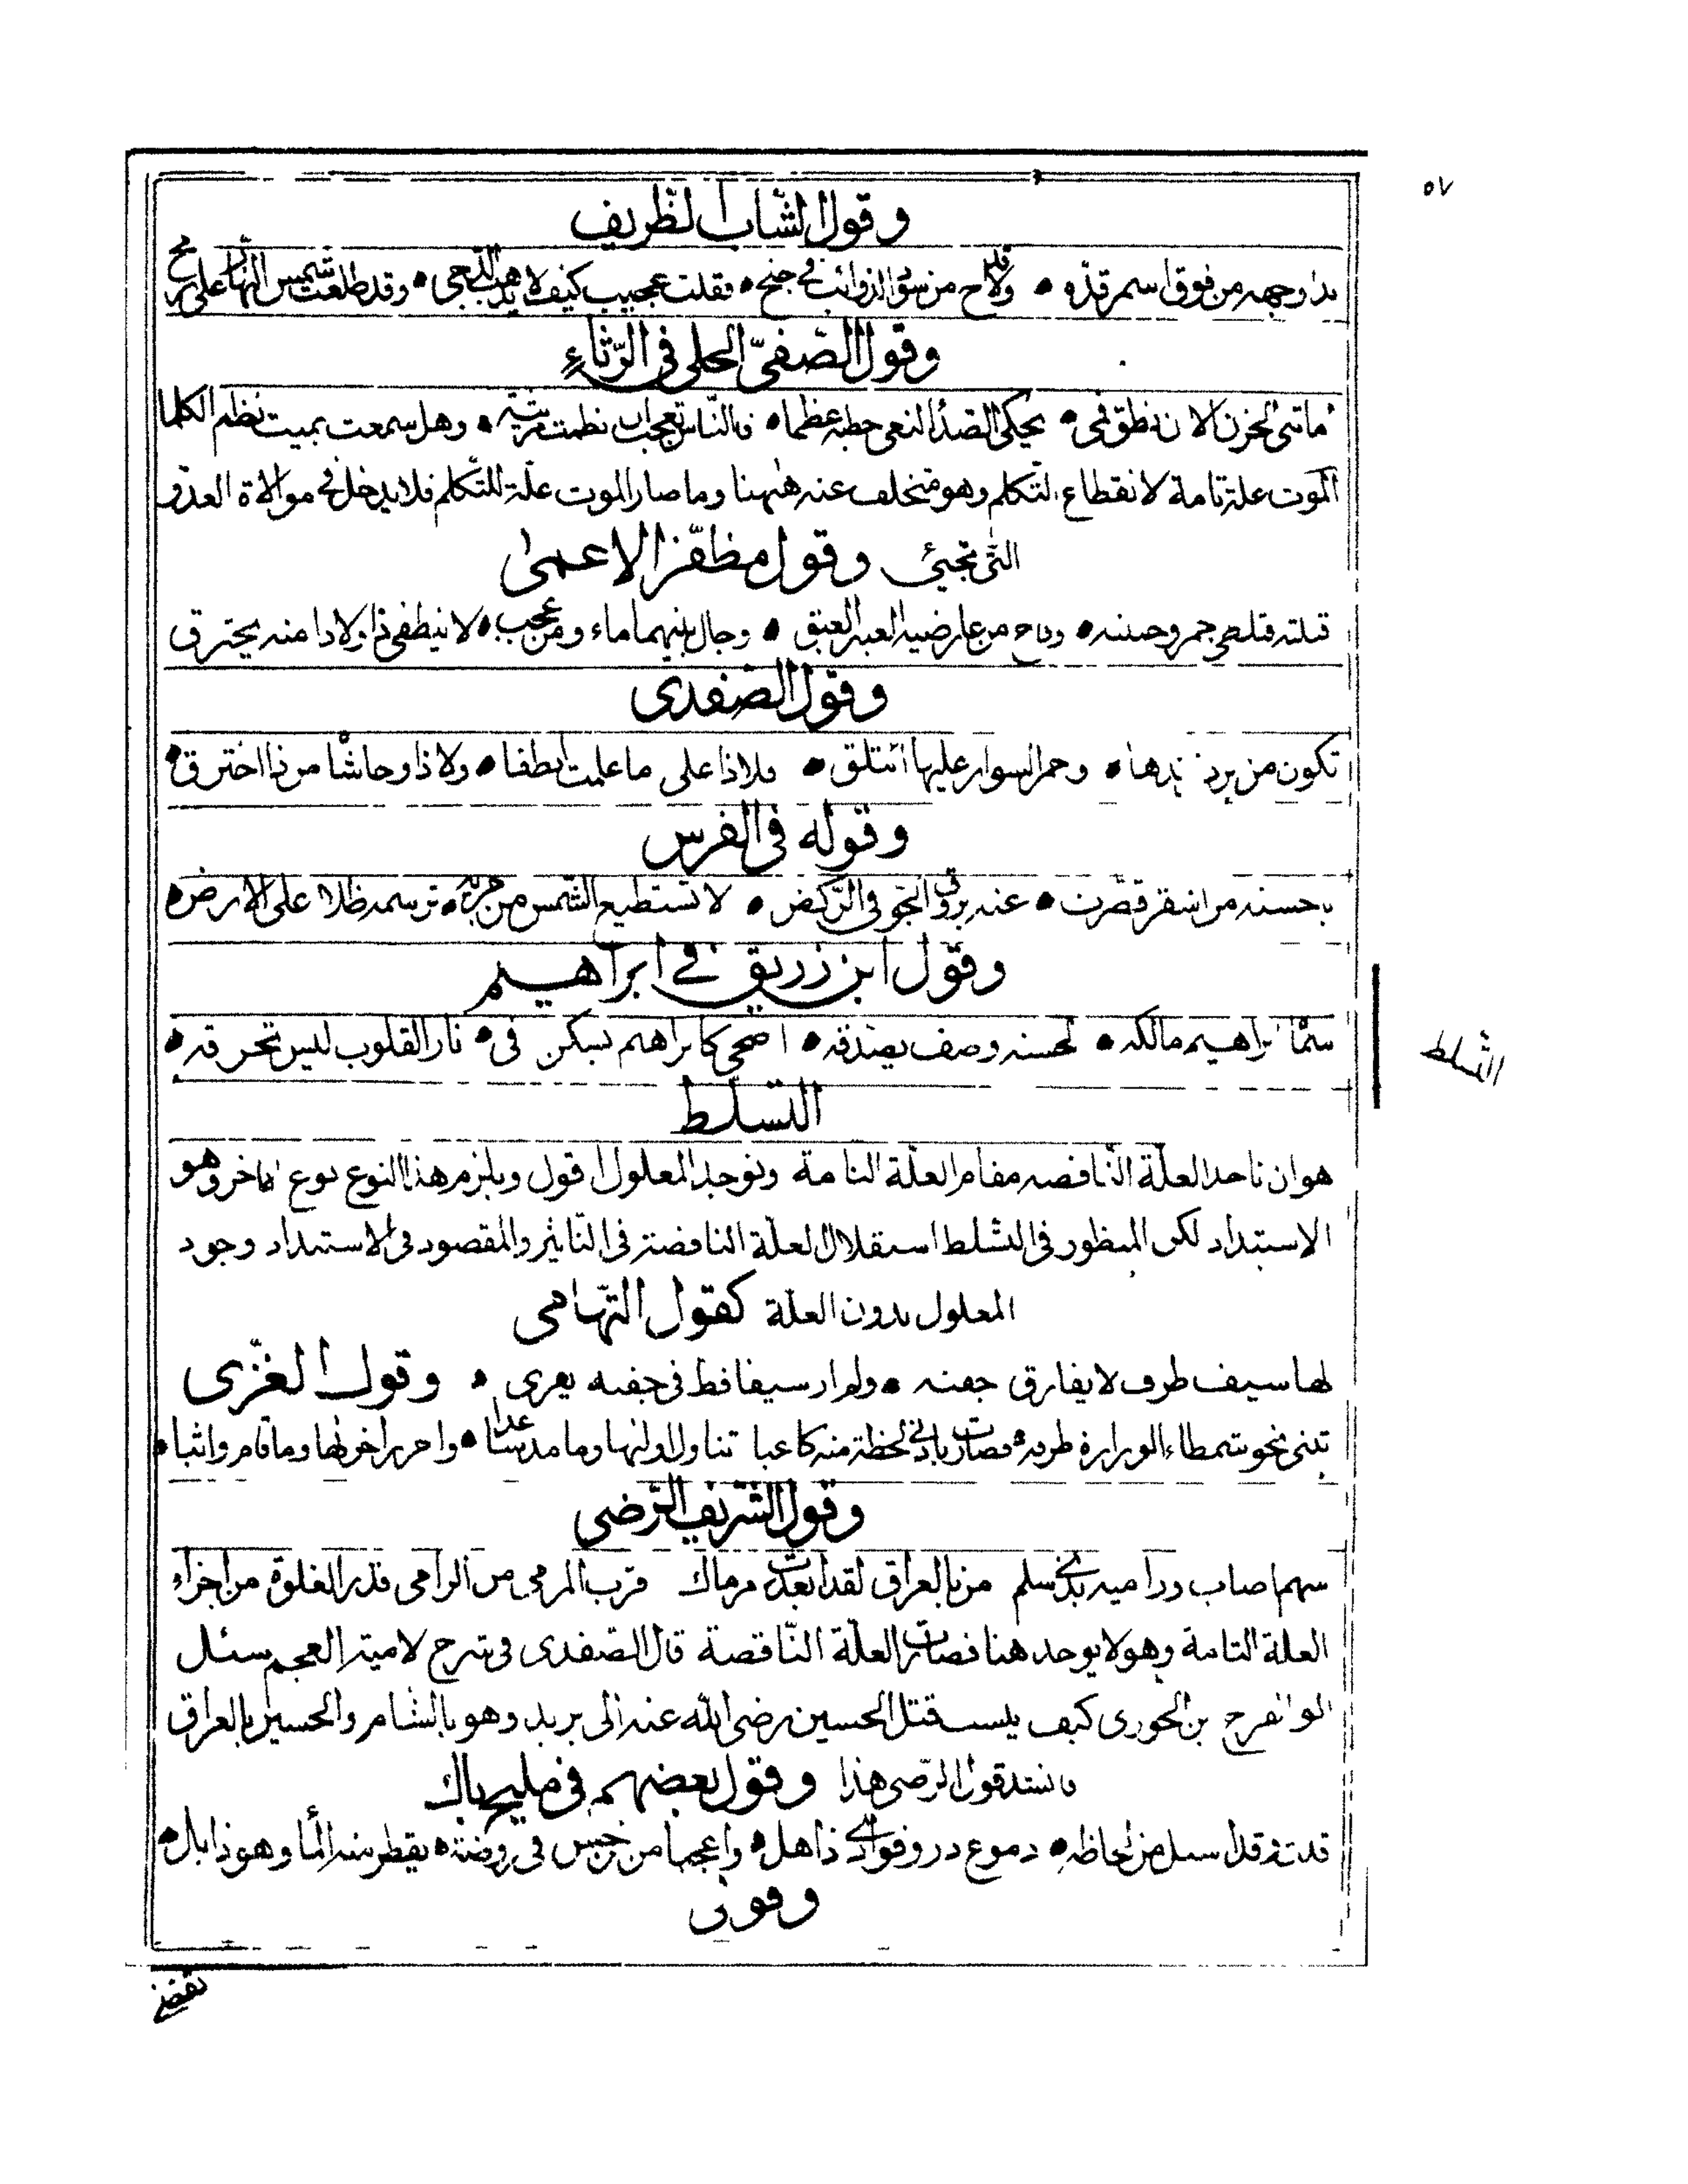 ٥٧
وقول الشاب الظريف
بدا وجهه من فوق اسمر قدّه • وقد لاح من سود الذوائب في جنح • فقلت عجيب كيف لا يذهب الدّجى • وقد طلعت شمس النهار على رمح
وقول الصّفيّ الحلي في الرّثاء
اماتني الحزن الا ان نطق فمي • يحكي الصدا لنعي خطبه عظما • فالنّاس تعجب ان نظمت مرثية • وهل سمعت بميت نظم الكلما
الموت علة تامة لانقطاع التكلم وهو متخلف عنه هٰهنا وما صار الموت علة للتّكلم فلا يدخل في موالاة العدوّ
التي تجيئ وقول مظفّر الاعمى
قبلته فتلظى جمر وجنته • وفاح من عارضيه العنبر العبق • وجال بينهما ماء ومن عجب • لا ينطفي ذا ولا ذا منه يحترق
وقول الصّفدي
تكون من برد زندها • وجمر السوار عليها ائتلق • فلا ذا على ما علمت انطفا • ولا ذا وحاشا من ذا احترق •
وقوله في الفرس
يا حسنه من اشقر قصرت • عنه بروق الجو في الرّكض • لا تستطيع الشّمس من جريه • ترسمه ظلا على الارض •
وقول ابن زريق في ابراهيم
سمّا ابراهيم مالكه • لحسنه وصف يصدقه • اضحى كابراهيم يسكن في • نار القلوب ليس تحرقه •
التسلّط
التّسلط
هو ان تاخذ العلّة النّاقصه مقام العلّة التامة وتوجد المعلول اقول ويلزم هذا النوع نوع اٰخر وهو
الاستبداد لكن المنظور في التّسلط استقلال العلّة الناقصة في التّاثير والمقصود في الاستبداد وجود
المعلول بدون العلّة كقول التّهامي
لها سيف طرف لا يفارق جفنه • ولم ار سيفا قط في جفنه يفري • وقول الغزّي
تثنى نحو شمطاء الوزارة طرفه • فصارت بادنى لحظة منه كاعبا تناول اولٰها وما مد ساعدا • واحرز اخرٰها وما قام واثبا •
وقول الشّريف الرّضي
سهم اصاب وراميه بذي سلم من بالعراق لقد ابعدت مرماك قرب المرمي من الرامي قدر الغلوة من اجزاء
العلة التامة وهو لا يوجد هنا فصارت العلّة النّاقصة قال الصّفدي في شرح لامية العجم سئل
ابو الفرج بن الجوزي كيف ينسب قتل الحسين رضى الله عنه الى يزيد وهو بالشام والحسين بالعراق
فانشد قول الرّضي هذا وقول بعضهم في مليح باك
قلت وقد اسبل من لحاظه • دموع در وفؤادي ذاهل • واعجبا من نرجس في روضة • يقطر منه الما وهو ذابل •
وقوني